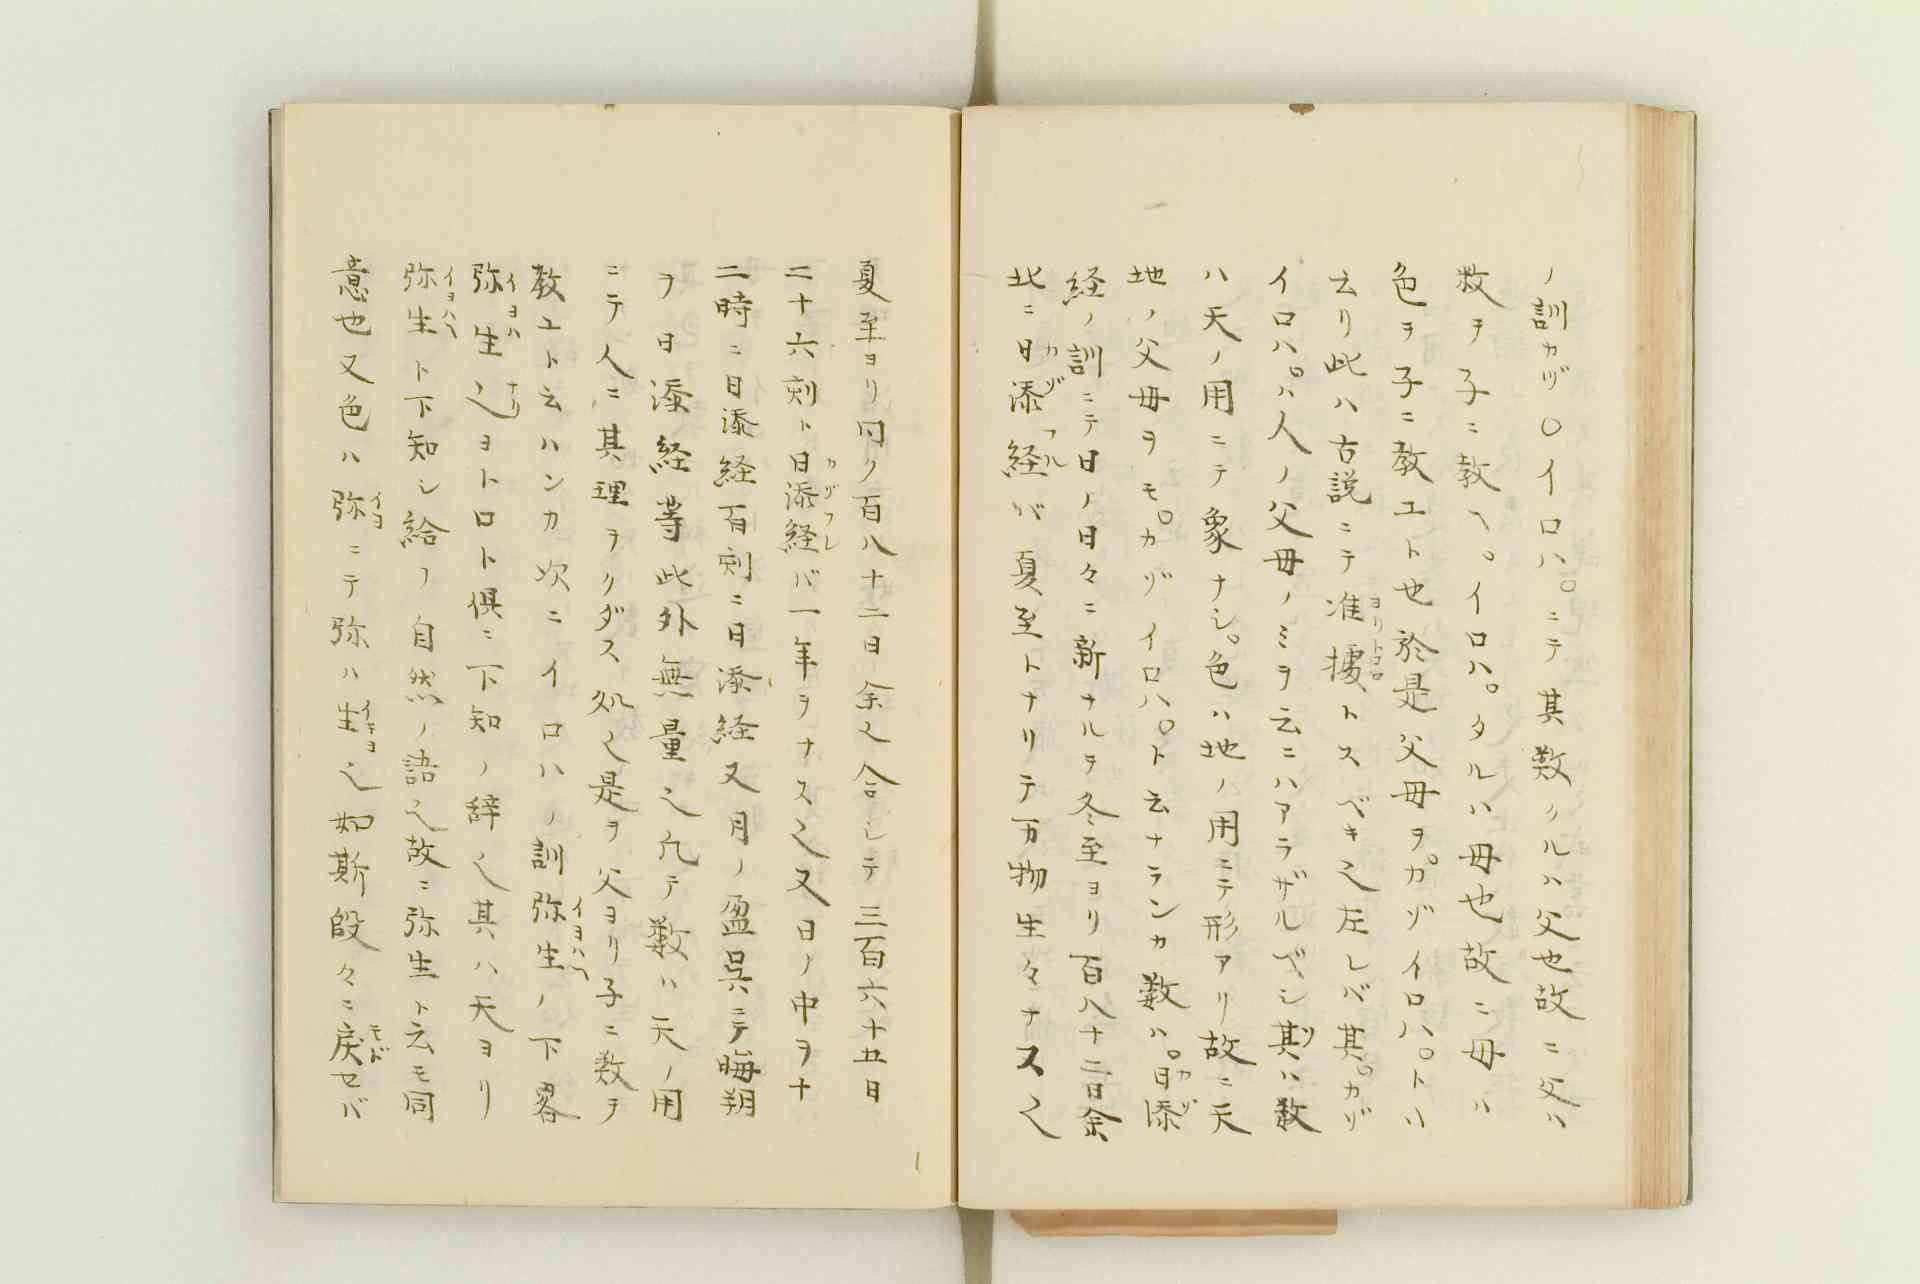 ノ訓カヅ〇イロハ。ニテ其数クルハ父也故ニ父ハ
数ヲ子ニ教ヘ。イロハ。タルハ母也故ニ母ハ
色ヲ子ニ教エト也於是父母ヲ。カゾイロハ。トハ
云リ此ハ古説ニテ准據トスベキ之左レバ其。カゾ
イロハ。ハ人ノ父母ノミヲ云ニハアラザルベシ其ハ数
ハ天ノ用ニテ象ナシ。色ハ地ノ用ニテ形アリ故ニ天
地ノ父母ヲモ。カゾイロハ。ト云ナランカ数ハ。日添
経ノ訓ニテ日ノ日々ニ新ナルヲ冬至ヨリ百八十二日余
此ニ日添経バ夏至トナリテ万物生々ナス之
夏至ヨリ同ク百八十二日余之合シテ三百六十五日
二十六刻ト日添経バ一年ヲナス之又日ノ中ヲ十
二時ニ日添経百刻ニ日添経又月ノ盈呉ニテ晦朔
ヲ日添経等此外無量之凢テ数ハ天ノ用
ニテ人ニ其理ヲクダス処之是ヲ父ヨリ子ニ数ヲ
教エト云ハンカ次ニイロハノ訓弥生ノ下畧
弥生之ヨトロト倶ニ下知ノ辞之其ハ天ヨリ
弥生ト下知シ給フ自然ノ語之故ニ弥生ト云モ同
意也又色ハ弥ニテ弥ハ生之如斯段々ニ戻セバ